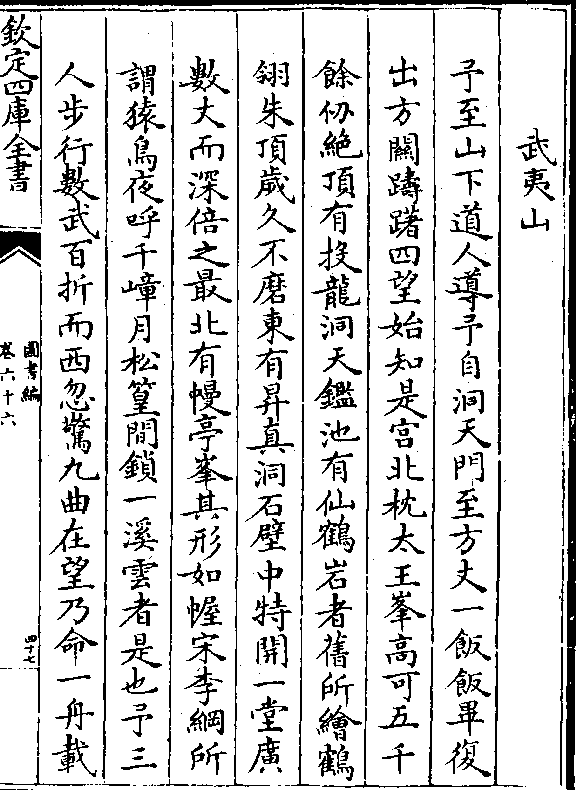 武夷山
予至山下道人導予自洞天門至方丈一飯飯畢復
出方闗躊躇四望始知是宫北枕太王峯高可五千
餘仞絶頂有投龍洞天鑑池有仙鶴岩者舊所繪鶴
翎朱頂歲久不磨東有昇真洞石壁中特開一堂廣
數丈而深倍之最北有幔亭峯其形如幄宋李綱所
謂猿鳥夜呼千嶂月松篁間鎖一溪雲者是也予三
人步行數武百折而西忽驚九曲在望乃命一舟載
欽定四庫全書
圖書編
卷六十六
四十七